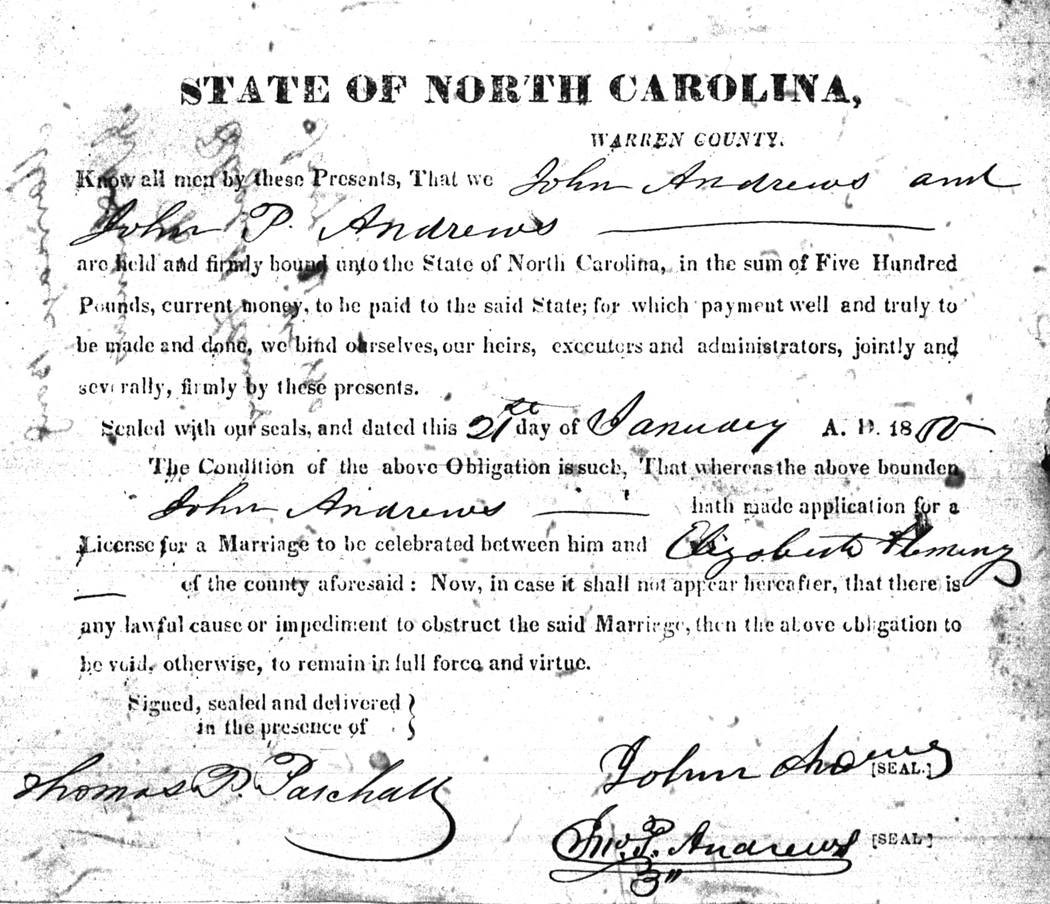 STATE OF NORTH CAROLINA,
WARREN COUNTY.
Know all men by these Presents, That we John Andrews and
John P. Andrews
are held and firmly bound unto the State of North Carolina, in the sum of Five Hundred
Pounds, current money, to be paid to the said State; for which payment well and truly to
be made and done, we bind ourselves, our heirs, executors and administrators, jointly and
severally, firmly by these presents.
Sealed with our seals, and dated this 21th day of January A. D. 18
The Condition of the above Obligation is such, That whereas the above bounden
John Andrews hath made application for a
License for a Marriage to be celebrated between him and Elizabeth Fleming
of the county aforesaid: Now, in case it shall not appear hereafter, that there is
any lawful cause or impediment to obstruct the said Marriage, then the above obligation to
be void, otherwise, to remain in full force and virtue.
Signed, sealed and delivered
in the presence of
Thomas P. Paschall
John [SEAL.]
Jno. P. Andrews [SEAL]